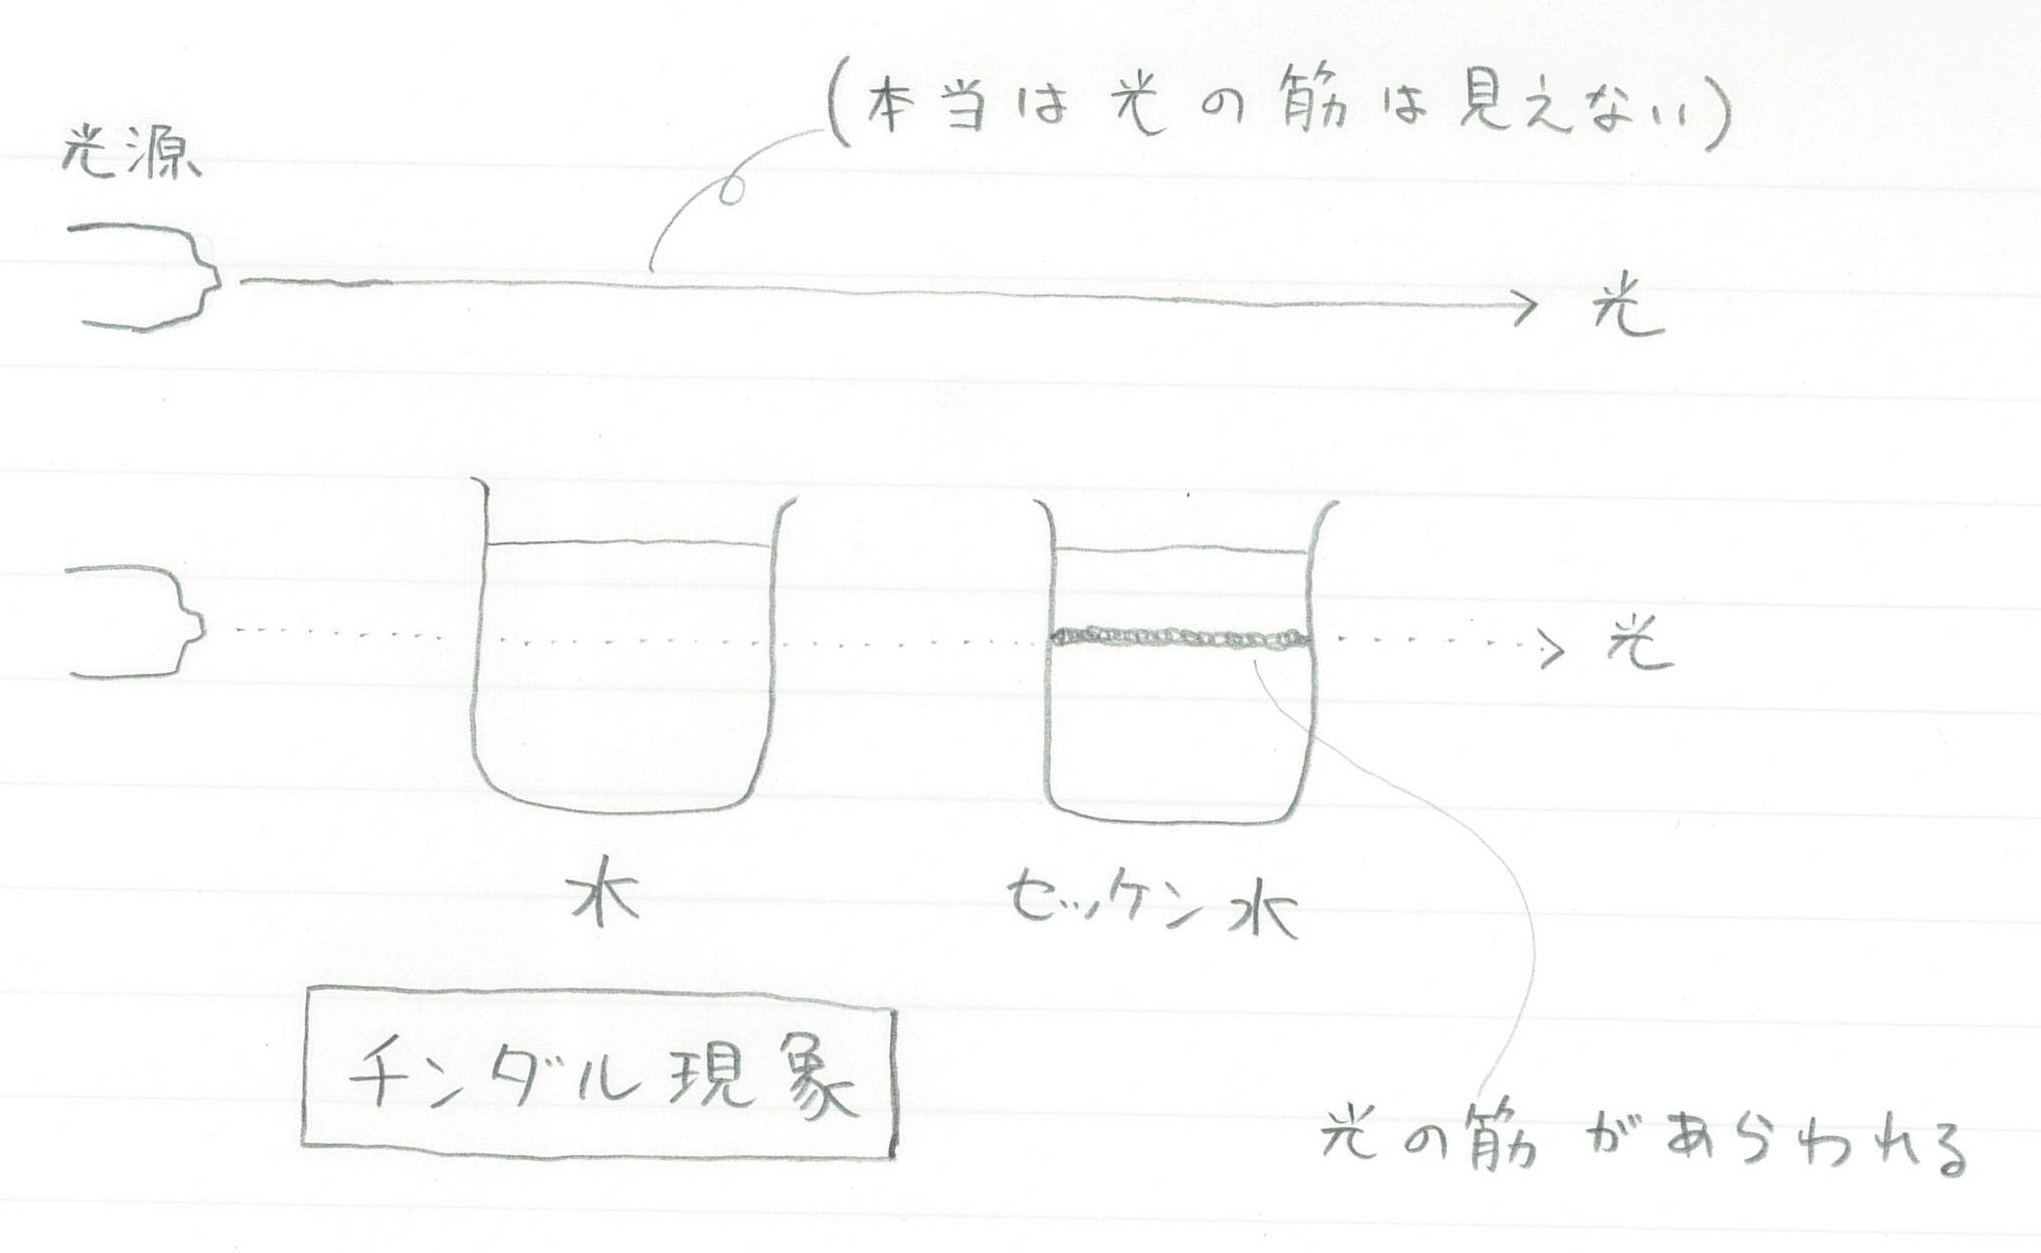 (本当は光の筋は見えない)
光源
光
光
水
セッケン水
チンダル現象
光の筋があらわれる